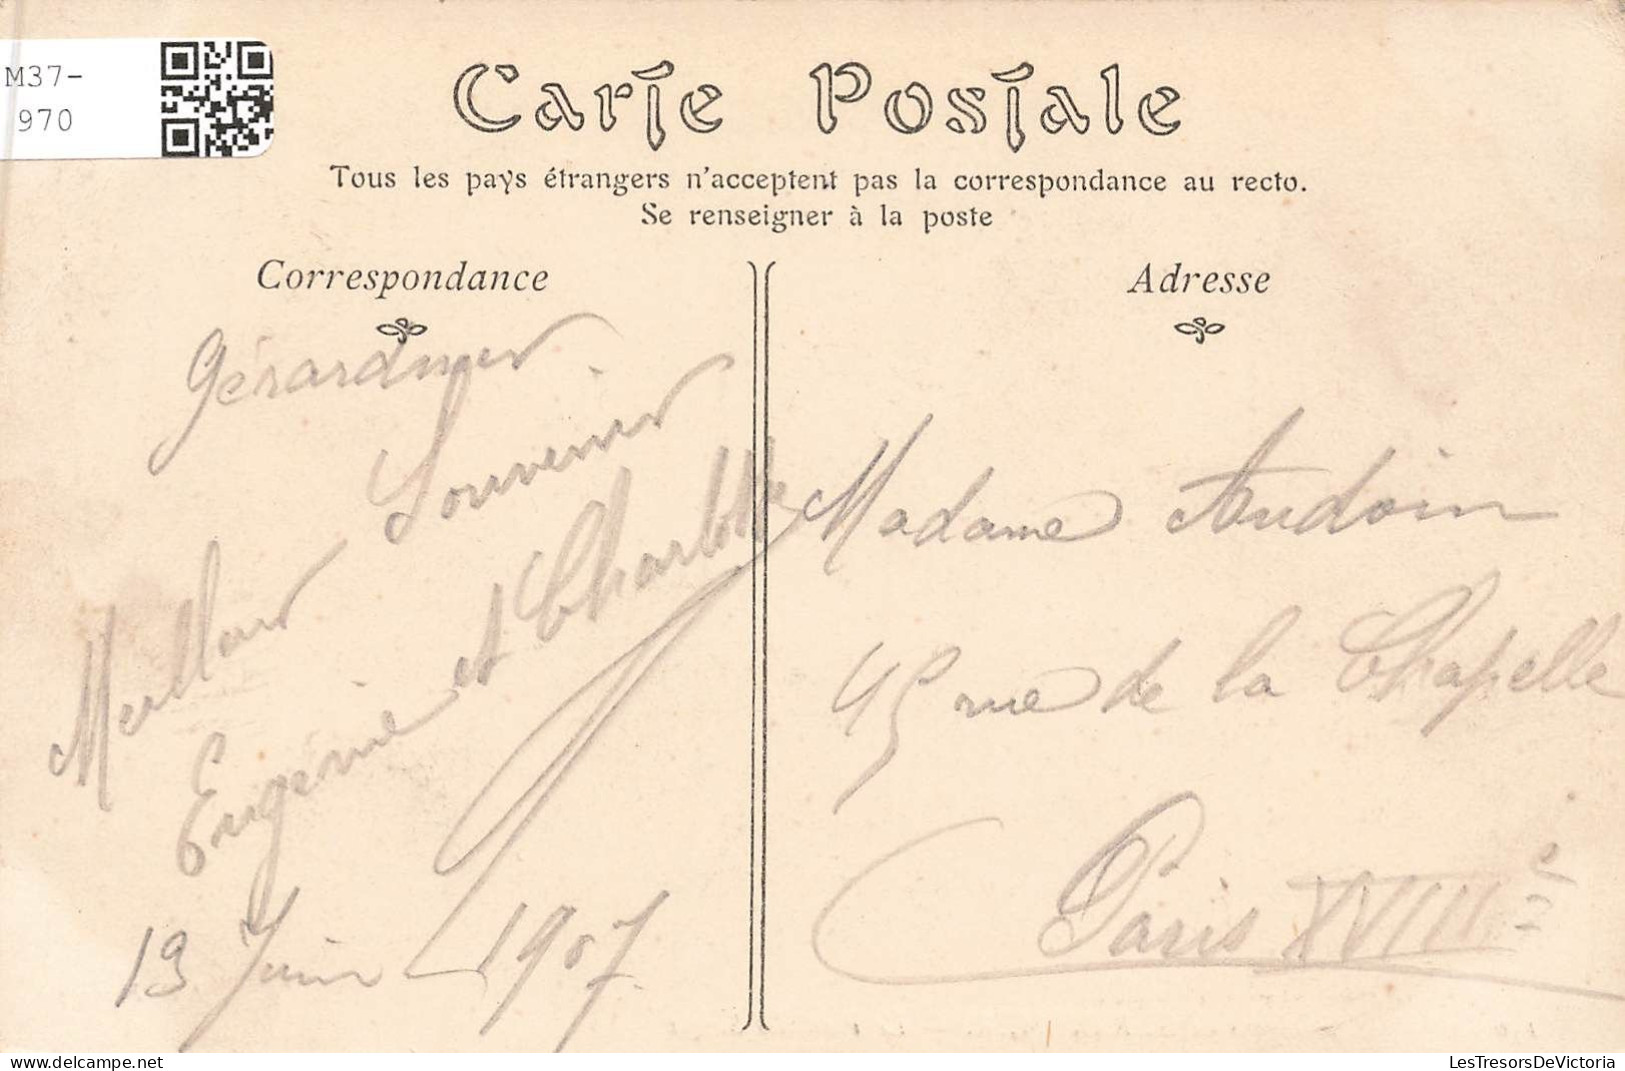 M37-
970
Carte Postale
Tous les pays étrangers n'acceptent pas la correspondance au recto.
Se renseigner à la poste
Correspondance
Gérardmer
Meilleur Souvenir
Eugénie et Charlotte
13 Juin 1907
Adresse
Madame Audoin
45 rue de la Chapelle
Paris XVIIIe
LesTresorsDeVictoria